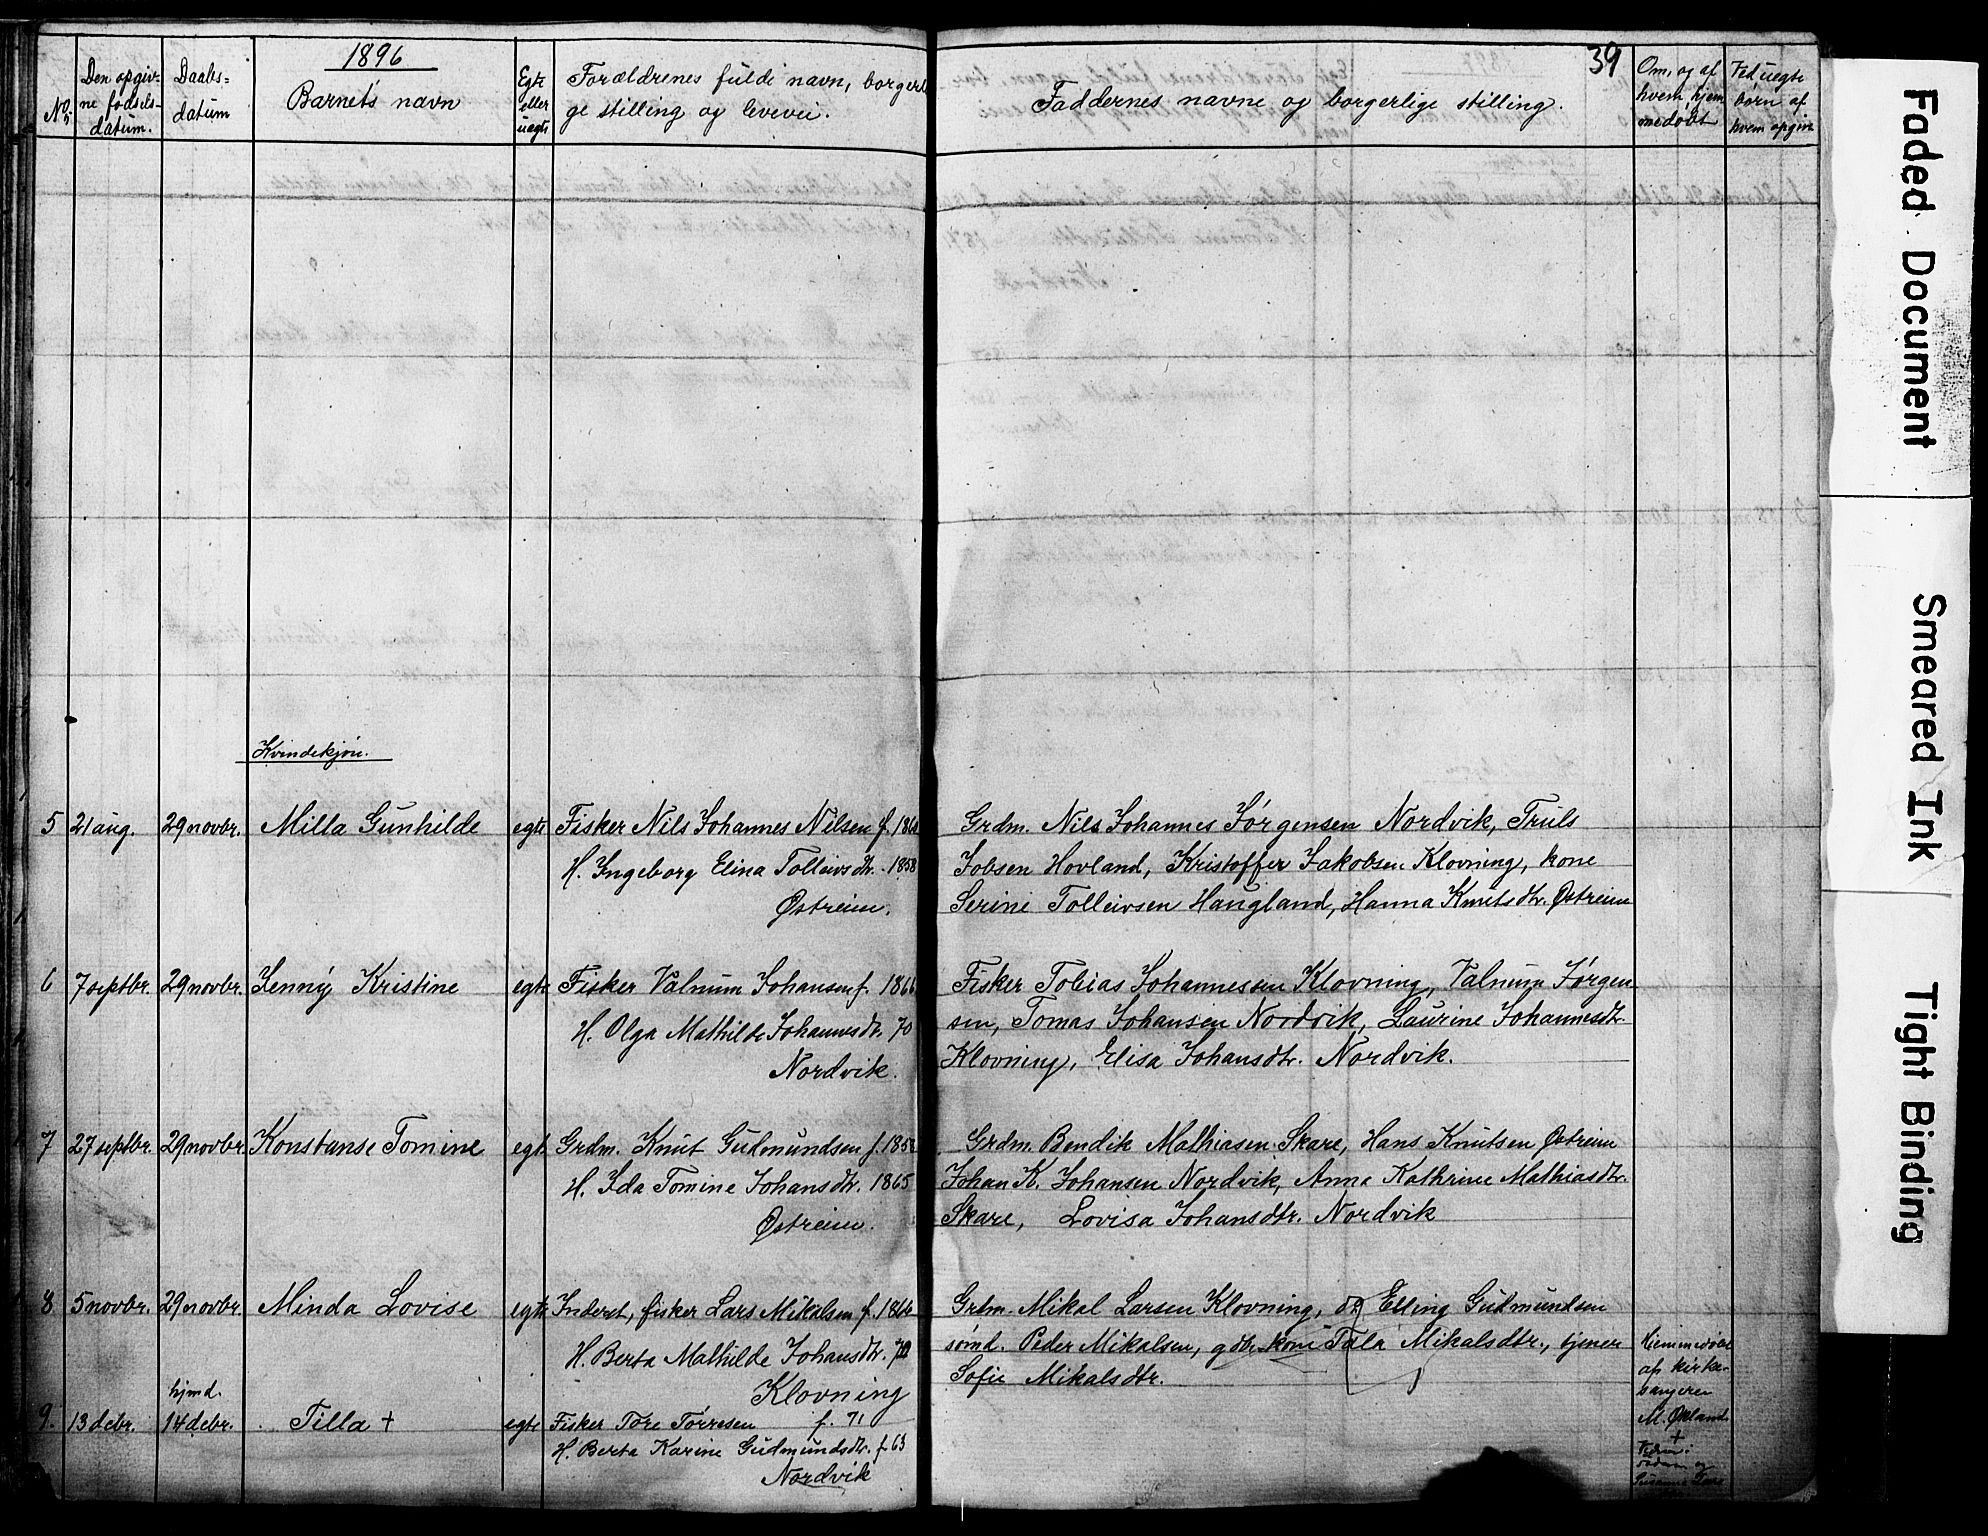 1896
39
No.
Den opgiv-
ne fødsels-
datum.
Daabs-
datum
Barnets navn
Egte
eller
uegte
Forældrenes fulde navn, borgerli
ge stilling og levevei.
Faddernes navne og borgerlige stilling.
Om, og af
hvem hjem
medøbt
Ved uegte
børn af
hvem opgive
Kvindekjøn.
5 21 aug. 29 novbr. Milla Gunhilde egte Fisker Nils Johannes Nilsen f. 186
H. Ingeborg Elina Tolleivsdtr. 1858
Østreim.
Grdm. Nils Johannes Jørgensen Nordvik, Truls
Jobsen Hovland, Kristoffer Jakobsen Klovning, kone
Serine Tolleivsen Haugland, Hanna Knutsdtr. Østreim
6 7 septbr. 29 novbr. Jenny Kristine egte Fisker Valnum Johansen f. 1866
H. Olga Mathilde Johannesdtr. 70
Nordvik.
Fisker Tobias Johannessen Klovning, Valnum Jørgen-
sen, Tomas Johansen Nordvik, Laurine Johannesdtr.
Klovning, Elisa Johansdtr. Nordvik.
7 27 septbr. 29 novbr. Konstanse Tomine egte Grdm. Knut Gudmundsen f. 1858
H. Ida Tomine Johansdtr. 1865
Østreim.
Grdm. Bendik Mathiasen Skare, Hans Knutsen Østreim
Johan K. Johansen Nordvik, Anna Kathrine Mathiasdtr.
Skare, Lovisa Johansdtr. Nordvik
8 5 novbr. 29 novbr. Minda Lovise egte Inderst, fisker Lars Mikalsen f. 1866
H. Berta Mathilde Johansdtr. 70
Klovning
Grdm. Mikal Larsen Klovning, og Elling Gudmundsen
sømd. Peder Mikalsen, gdbr. kone Tala Mikalsdtr., tjener
Sofie Mikalsdtr.
hjmd.
9. 13 debr. 14 debr. Tilla + egte Fisker Tore Tørresen f. 71
H. Berta Karine Gudmundsdtr. f. 63
Nordvik
Hjemmedøbt
af kirke-
sangeren
M. Økland
+
Faded Document
Smeared Ink
Tight Binding